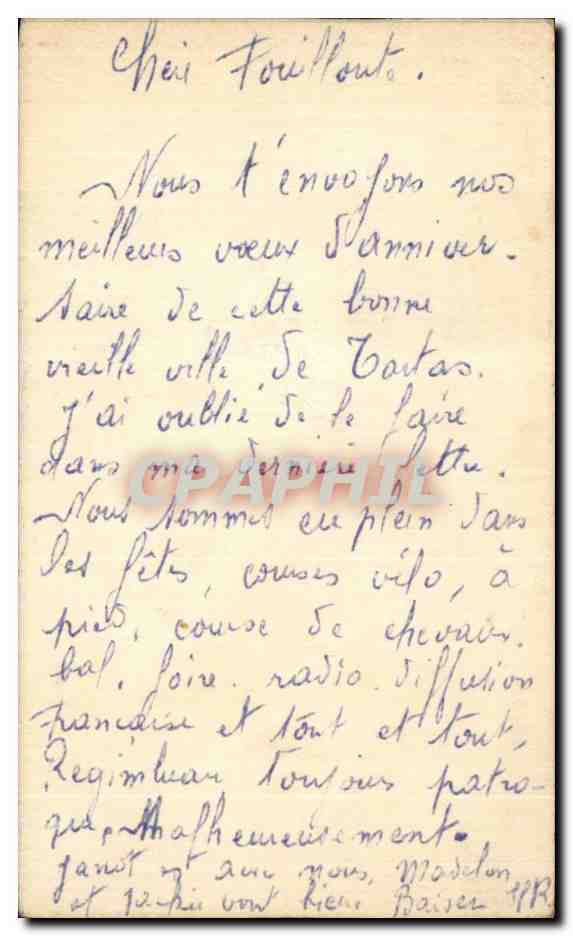 Chère Fouilloute.
Nous t'envoyons nos
meilleurs vœux d'anniver-
saire de cette bonne
vieille ville de Tartas.
J'ai oublié de le faire
dans ma dernière lettre.
CPAPHIL
Nous sommes en plein dans
les fêtes, courses vélo, à
pied, course de chevaux.
bal. foire. radio. diffusion
Française et tout et tout,
toujours patra-
que, Malheureusement.
Janot est avec nous, Madelon
et vont bien. Baiser